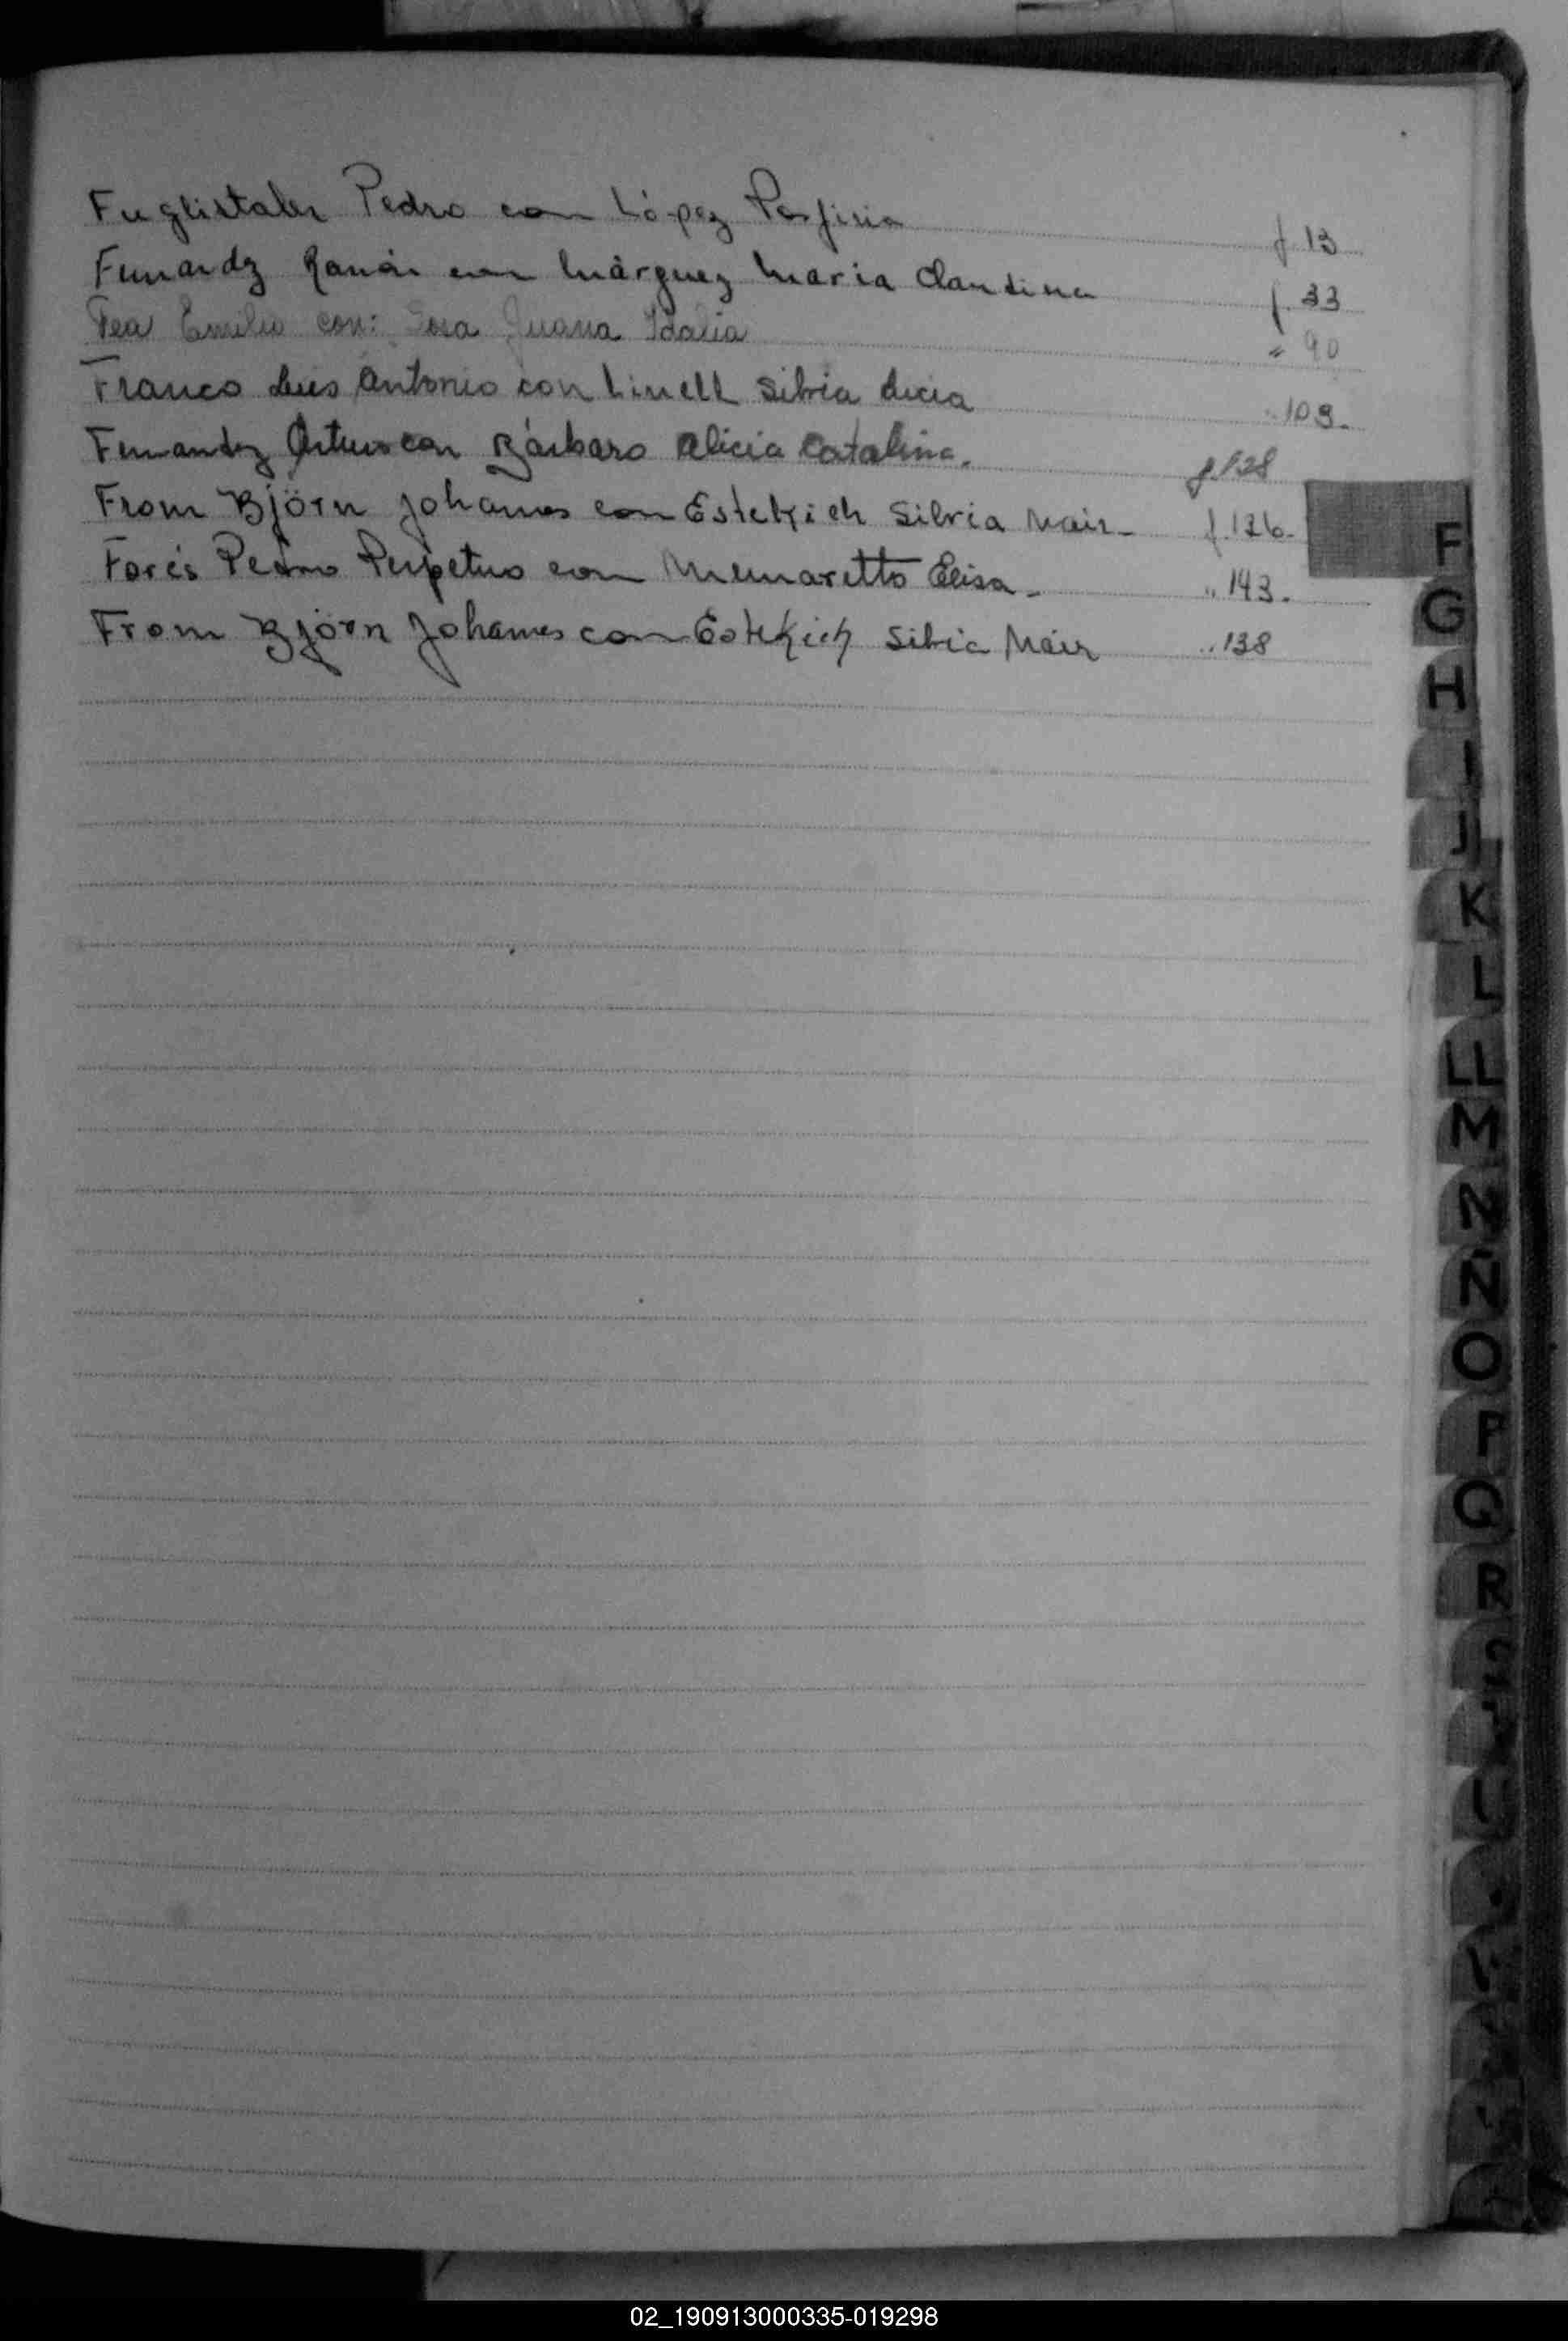 Fuglistaler Pedro con López Porfiria f. 13
Fernandz Ramón con Márquez Maria Claudina f. 33
Fea Emilio con: Sosa Juana Idalia " 90
Franco Luis Antonio con Linell Silvia Lucia " 109.
Fernandez Arturo con Bárbaro Alicia Catalina. f. 128
From Björn Johannes con Estekich Silvia Mair - f. 126.
Forés Pedro Perpetuo con Mumaretto Elisa - " 143.
From Björn Johannes con Estekich Silvia Mair " 138
F
G
H
I
J
K
L
LL
M
N
Ñ
O
P
Q
R
S
02_190913000335-019298